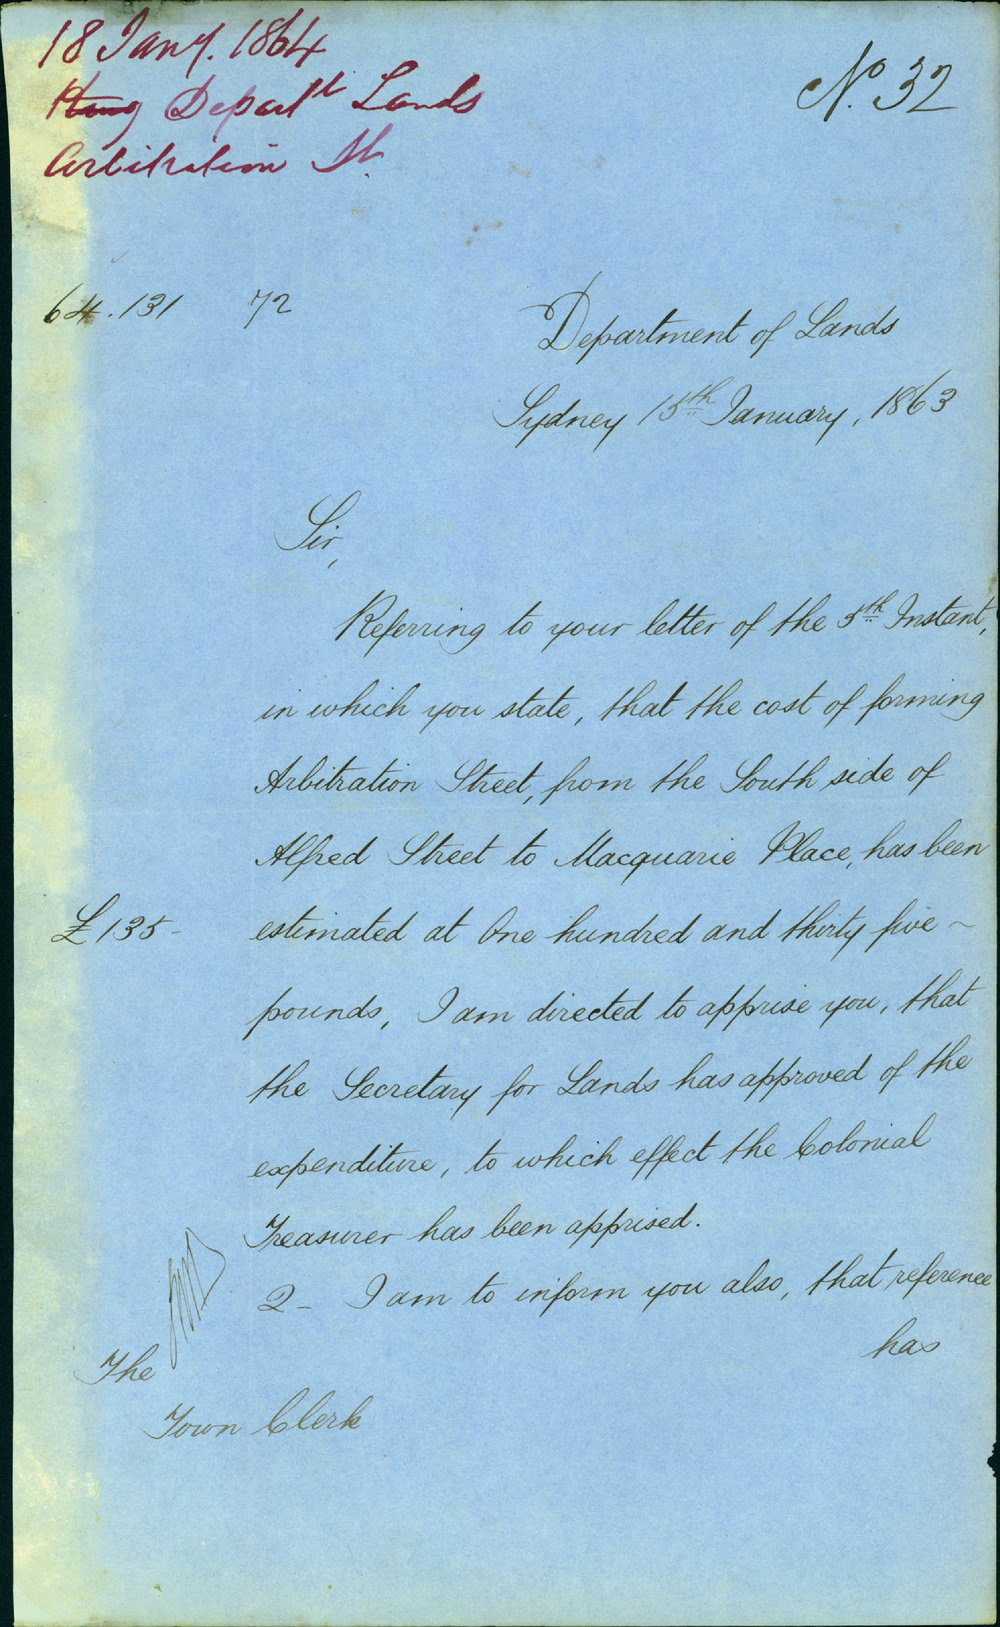 18 Jany. 1864
Depart^t Lands
Arbitration St.
No. 32
64.131 72
Department of Lands
Sydney 15th January, 1863
Sir,
Referring to your letter of the 5th Instant,
in which you state, that the cost of forming
Arbitration Street, from the South side of
Alfred Street to Macquarie Place, has been
£135- estimated at One hundred and thirty five ~
pounds, I am directed to apprise you, that
the Secretary for Lands has approved of the
expenditure, to which effect the Colonial
Treasurer has been apprised.
2- I am to inform you also, that reference
has
The
Town Clerk